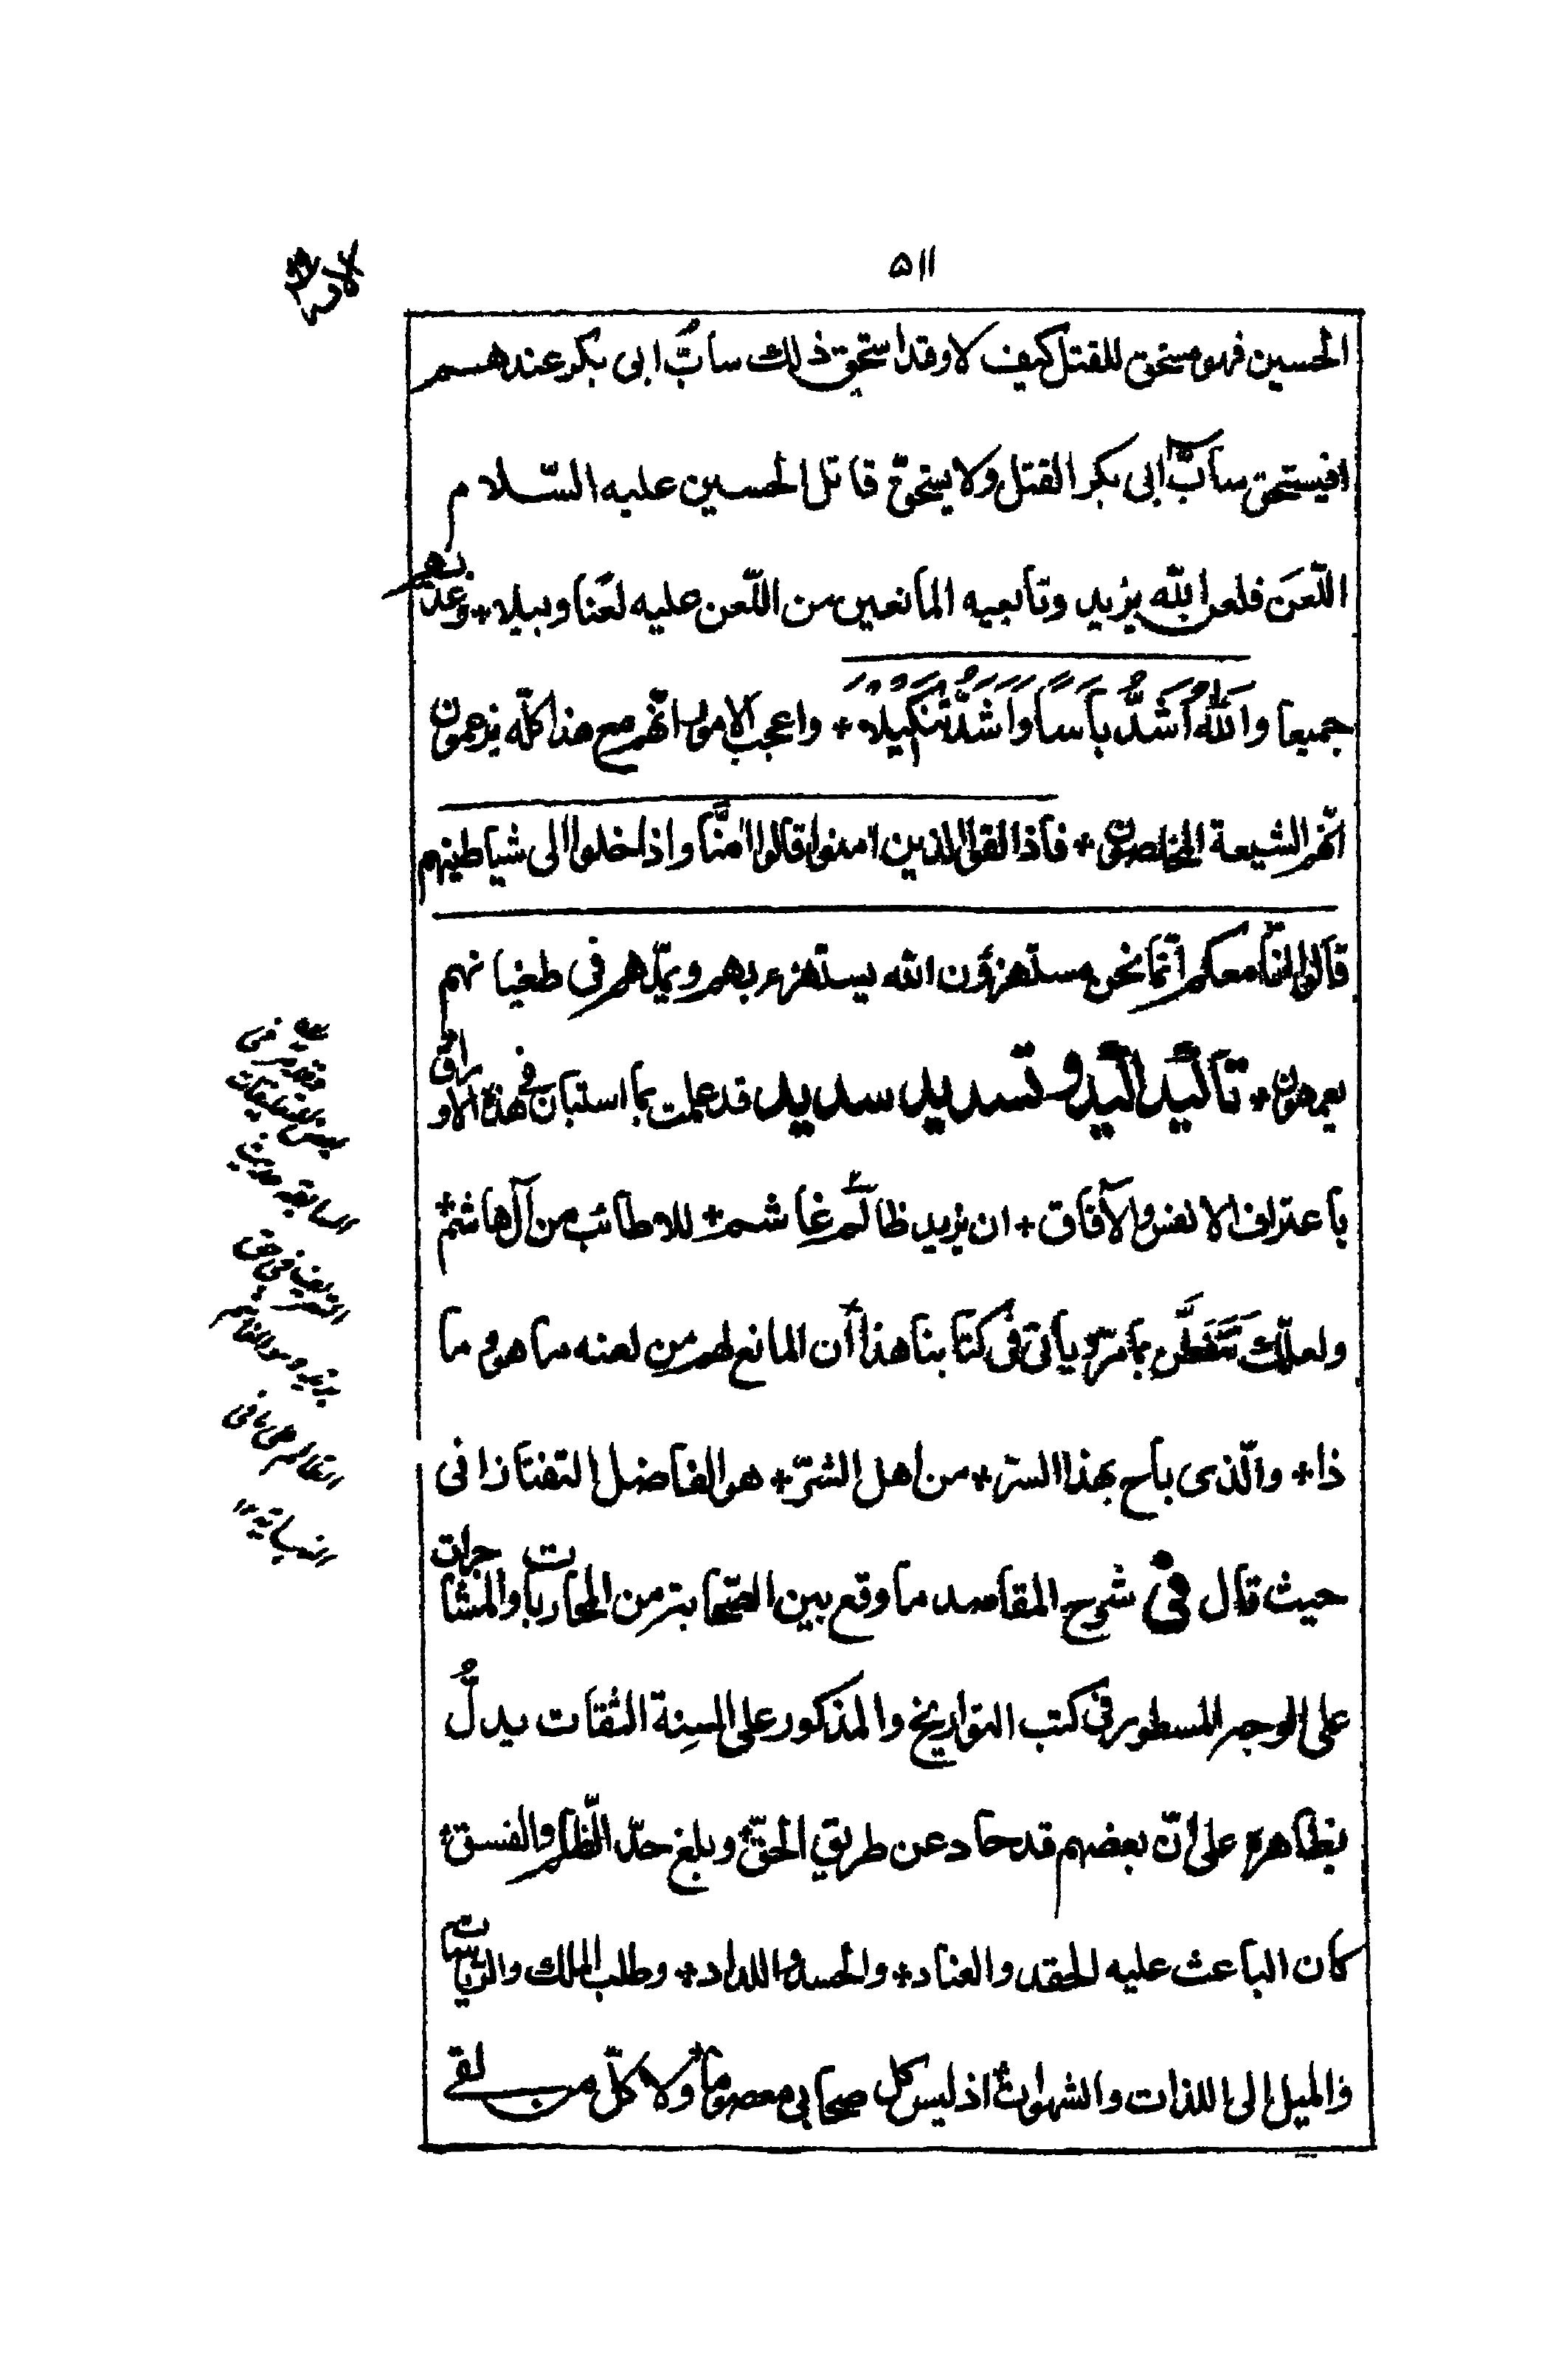 ٥١١
الحسين فهو مستحق للقتل كيف لا وقد استحق ذلك سابّ ابى بكر عندهم
افيستحق سابّ ابى بكر القتل ولا يستحقّ قاتل الحسين عليه السّلام
اللّعنَ فلعن الله يزيد وتابعيه المانعين من اللّعن عليه لعنا وبيلا+ وعذّبهم
جميعا وَاللّهُ اَشَدُّ بَأسًا وَاَشَدُّ تَنكِيلًا+ واعجب الامور انّهم مع هذا كلّه يزعمون
انّهم الشيعة المخلصون+ فاذا لقوا الذين امنوا قالوا امنَّا واذا خلوا الى شياطينهم
قالوا انّا معكم انّما نحن مستهزؤن الله يستهزء بهم ويمدّهم فى طغيانهم
يعمهون+ تاكيد اكيد و تسديد سديد قد علمت بما استبان فى هذه الاوراق
باعتراف الانفس والآفاق+ ان يزيد ظالم غاشم+ للاطائب من آل هاشم+
ولعلّك تَتَفَطَّن بما مرّ ويأتى فى كتابنا هذا أن المانع لهم من لعنه ما هو وما
ذا+ والّذى باح بهذا السرّ+ من اهل الشرّ+ هو الفاضل التفتازانى
حيث قال فى شرح المقاصد ما وقع بين الصّحابة من المحاربات والمشاجرات
على الوجه المسطور فى كتب التواريخ والمذكور على السِنة الثقات يدلُّ
بظاهره على أنّ بعضهم قد حاد عن طريق الحقّ+ وبلغ حدّ الظّلم والفسق+
كان الباعث عليه الحقد والعناد+ والحسد واللداد+ وطلب الملك والرياسات
والميل الى اللذات والشهوات+ اذ ليس كل صحابى معصومًا ولا كلّ من لقى